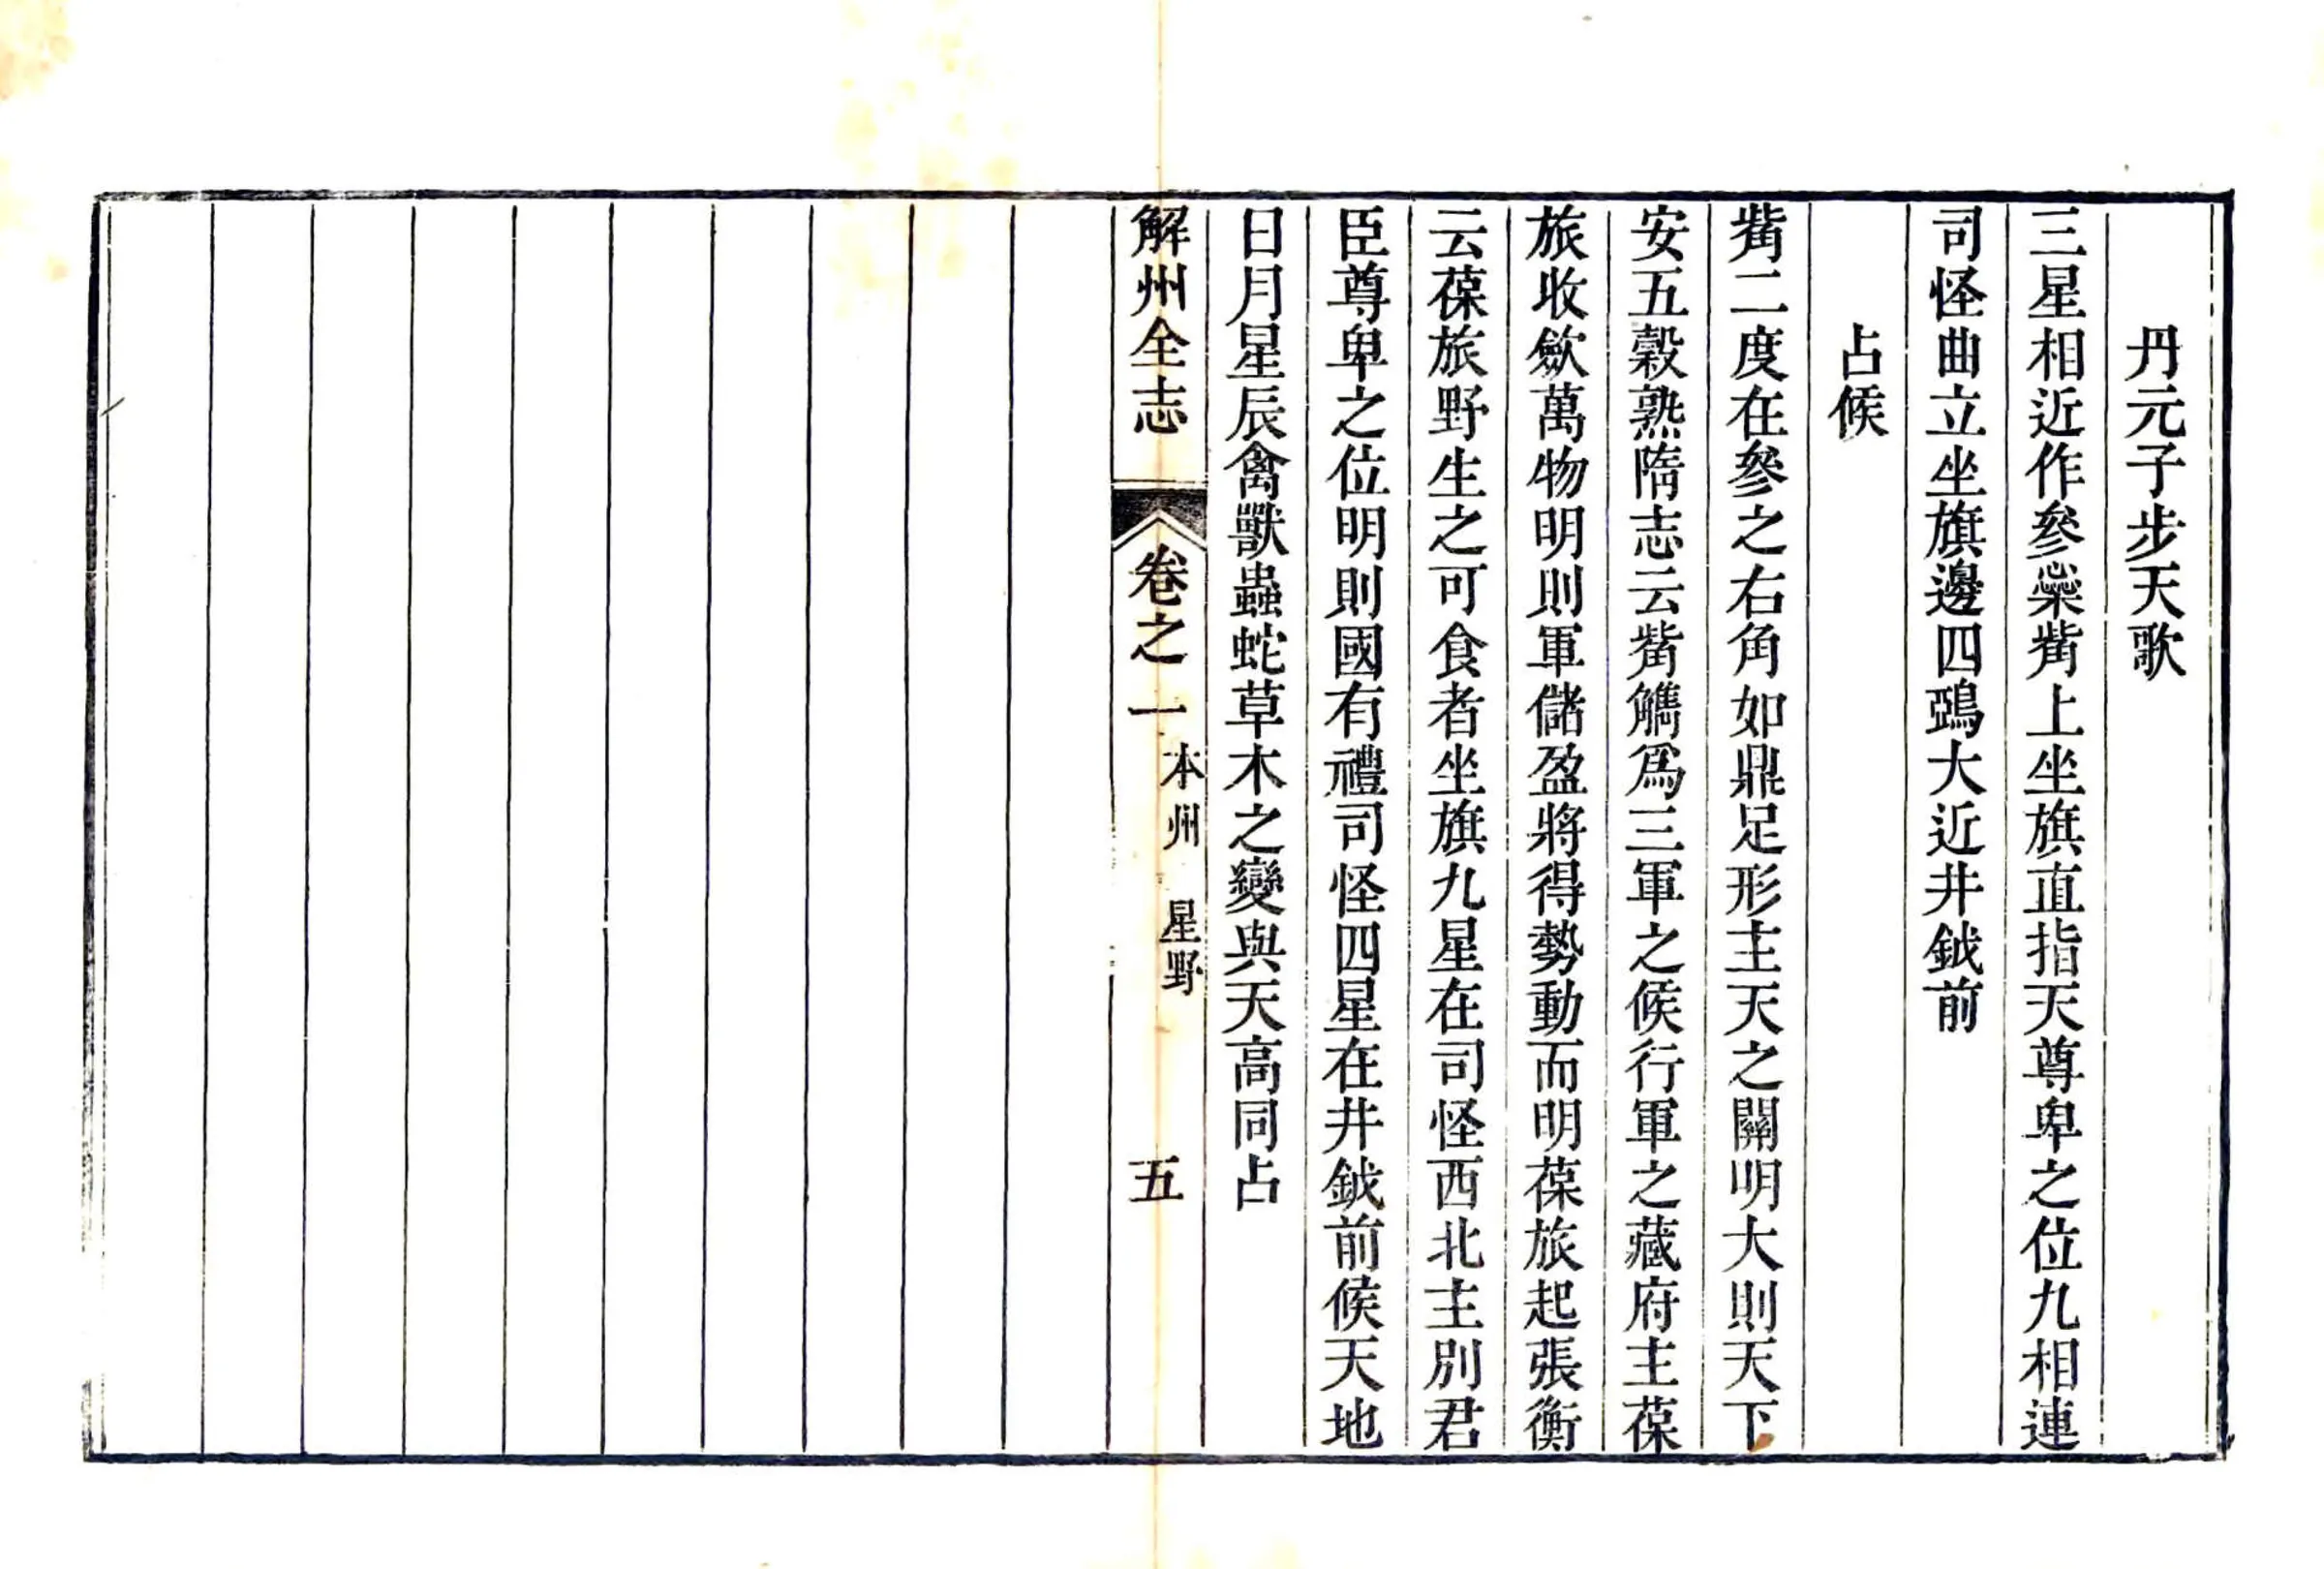 丹元子步天歌
三星相近作參蘂觜上坐旗直指天尊卑之位九相連
司怪曲立坐旗邊四鴉大近井鉞前
占候
觜二度在參之右角如鼎足形主天之關明大則天下
安五穀熟隋志云觜觿爲三軍之候行軍之藏府主葆
旅收斂萬物明則軍儲盈將得勢動而明葆旅起張衡
云葆旅野生之可食者坐旗九星在司怪西北主別君
臣尊卑之位明則國有禮司怪四星在井鉞前候天地
日月星辰禽獸蟲蛇草木之變與天高同占
解州全志 卷之一 本州 星野 五